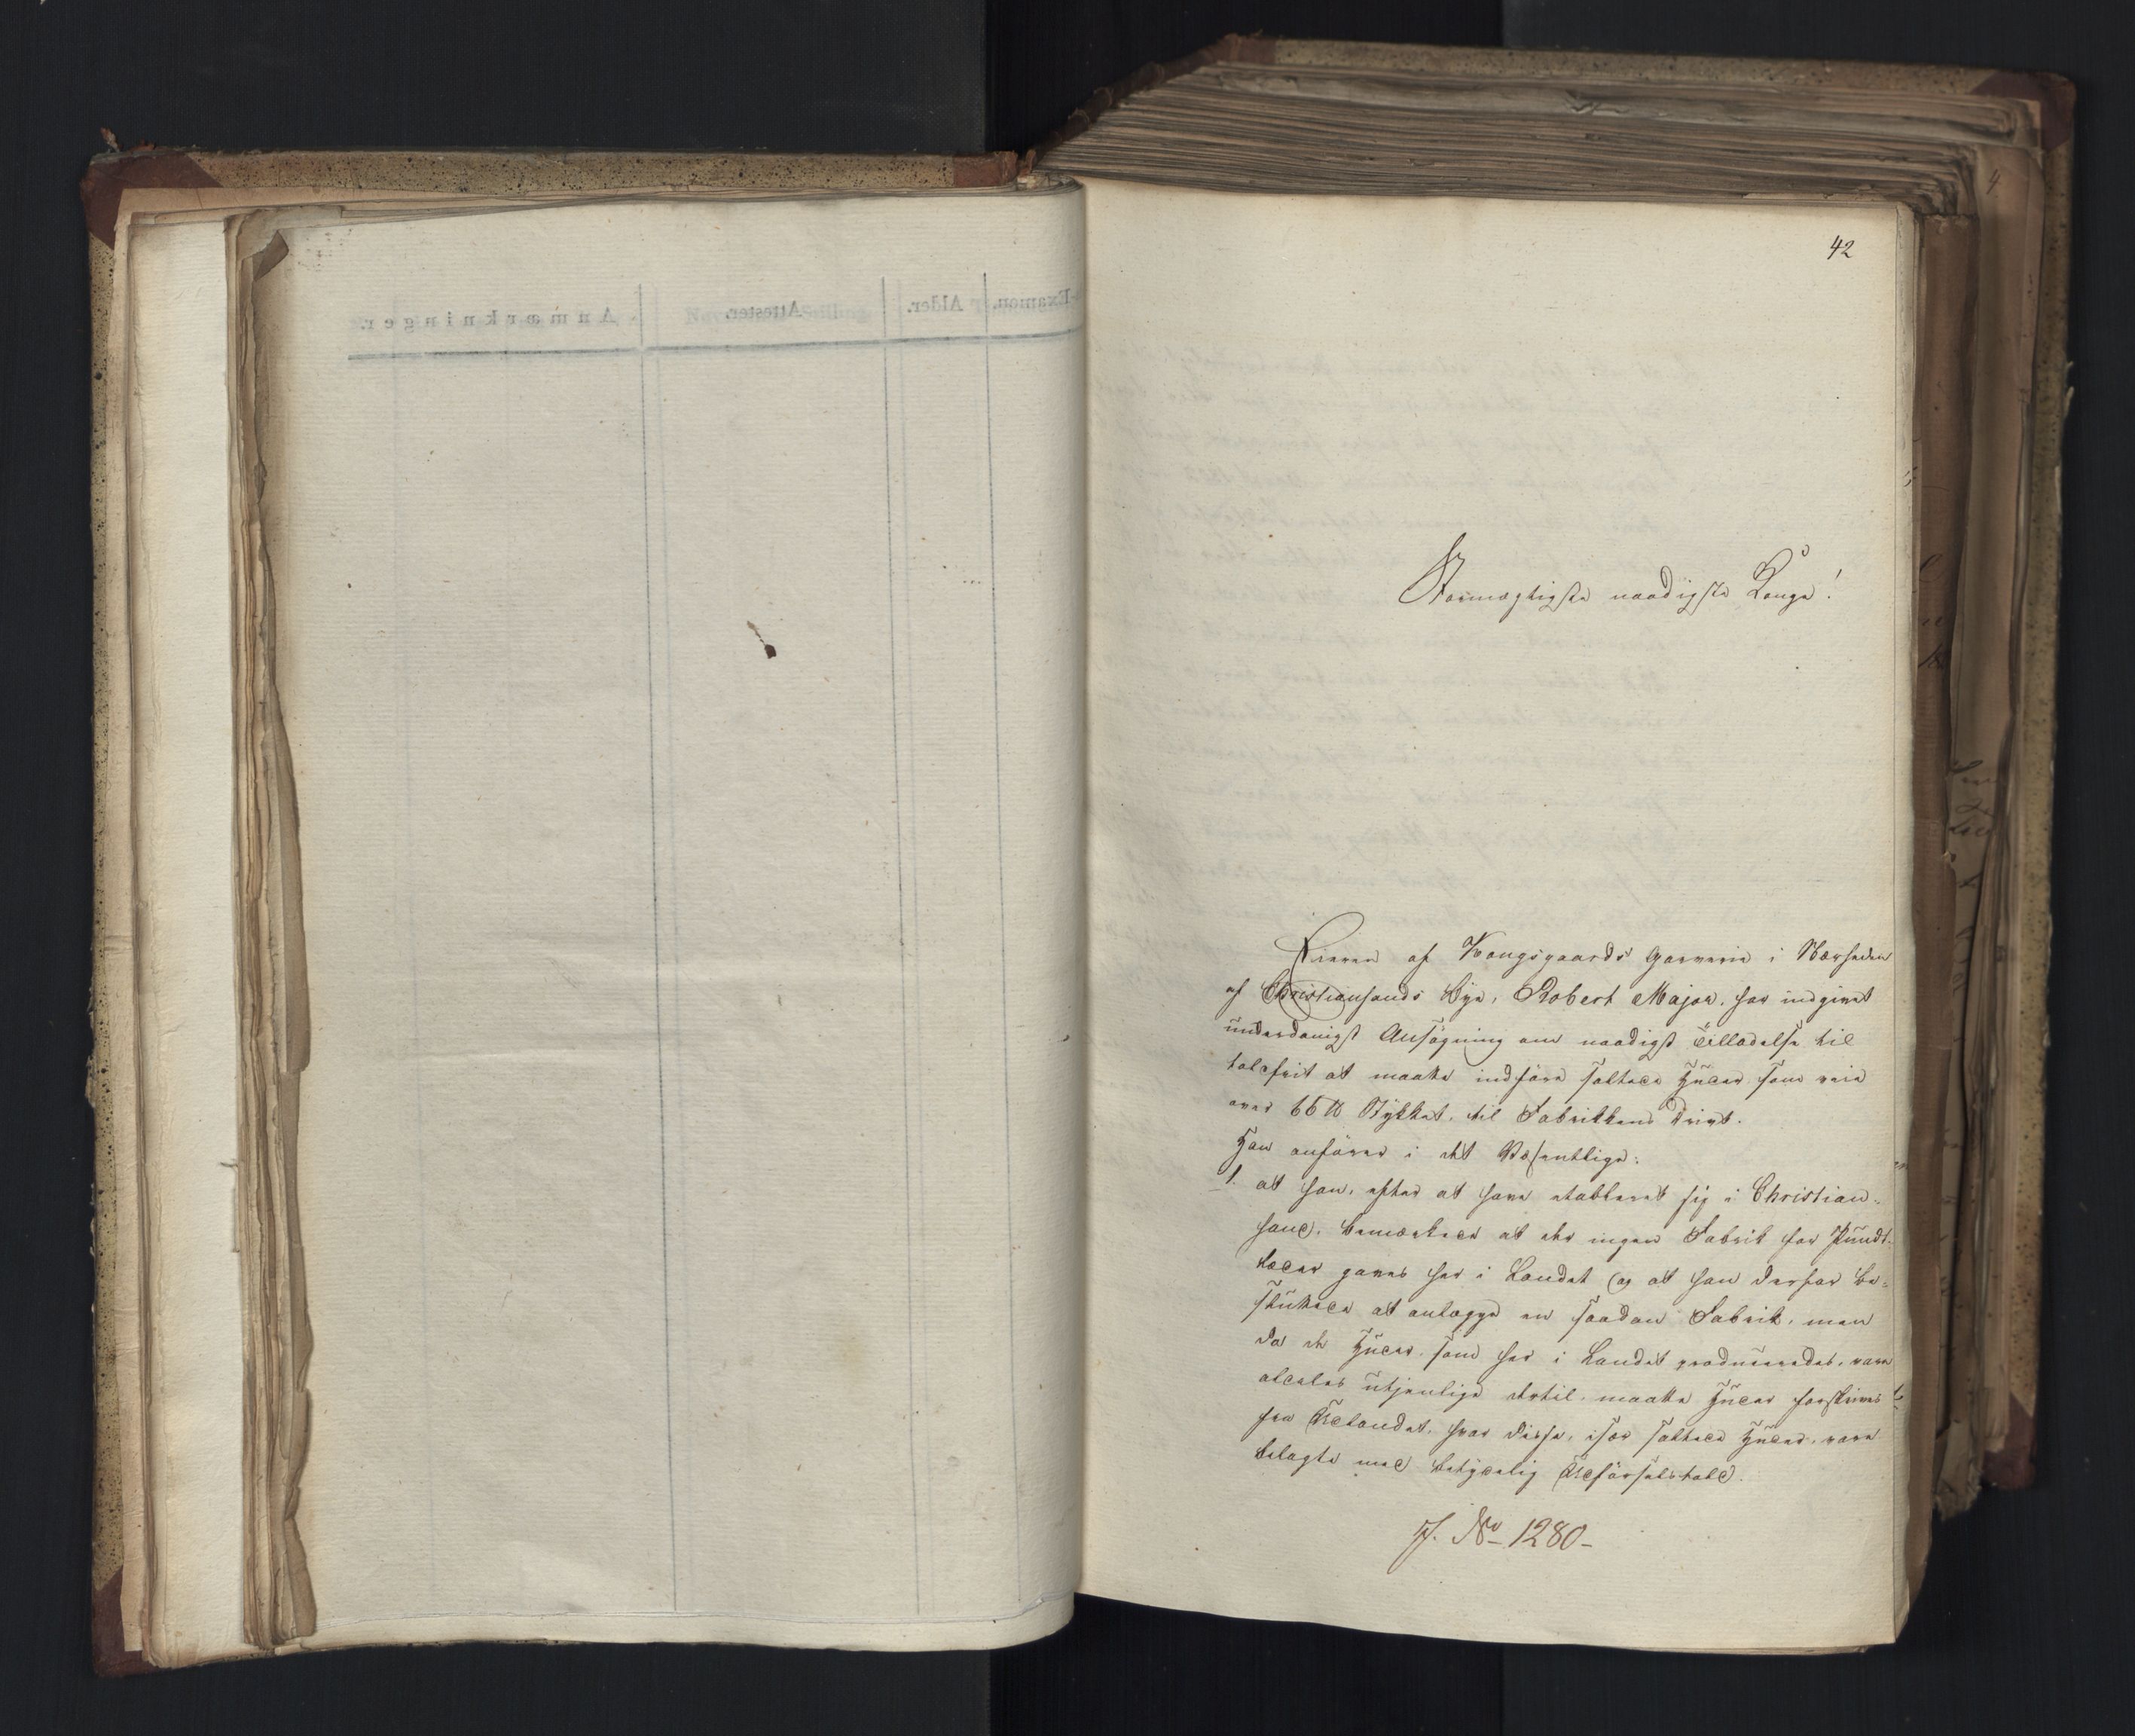 42
Stormægtigste naadigste Konge!
Eieren af Kongsgaards Garverie i Nærheden
af Christiansands Bye, Robert Major, har indgivet
underdanigst Ansøgning om naadigst Tilladelse til
toldfrit at maatte indføre saltede Huder som veie
over 66 ℔ Stykket, til Fabrikkens Drivt.
Han anfører i det Væsentlige:
1. at han, efter at have etableret sig i Christian-
sand, bemærkede at der ingen Fabrik for Pundt-
læder gaves her i Landet og at han derfor be-
sluttede at anlægge en saadan Fabrik, men
da de Huder, som her i Landet produceredes, vare
aldeles utjenlige dertil, maatte Huder forskrives
fra Udlandet, hvor disse, især saltede Huder, vare
belagte med betydelig Udførselstold.
J. No 1280-
Anmærkninger.
Attester.
Alder.
Examen.